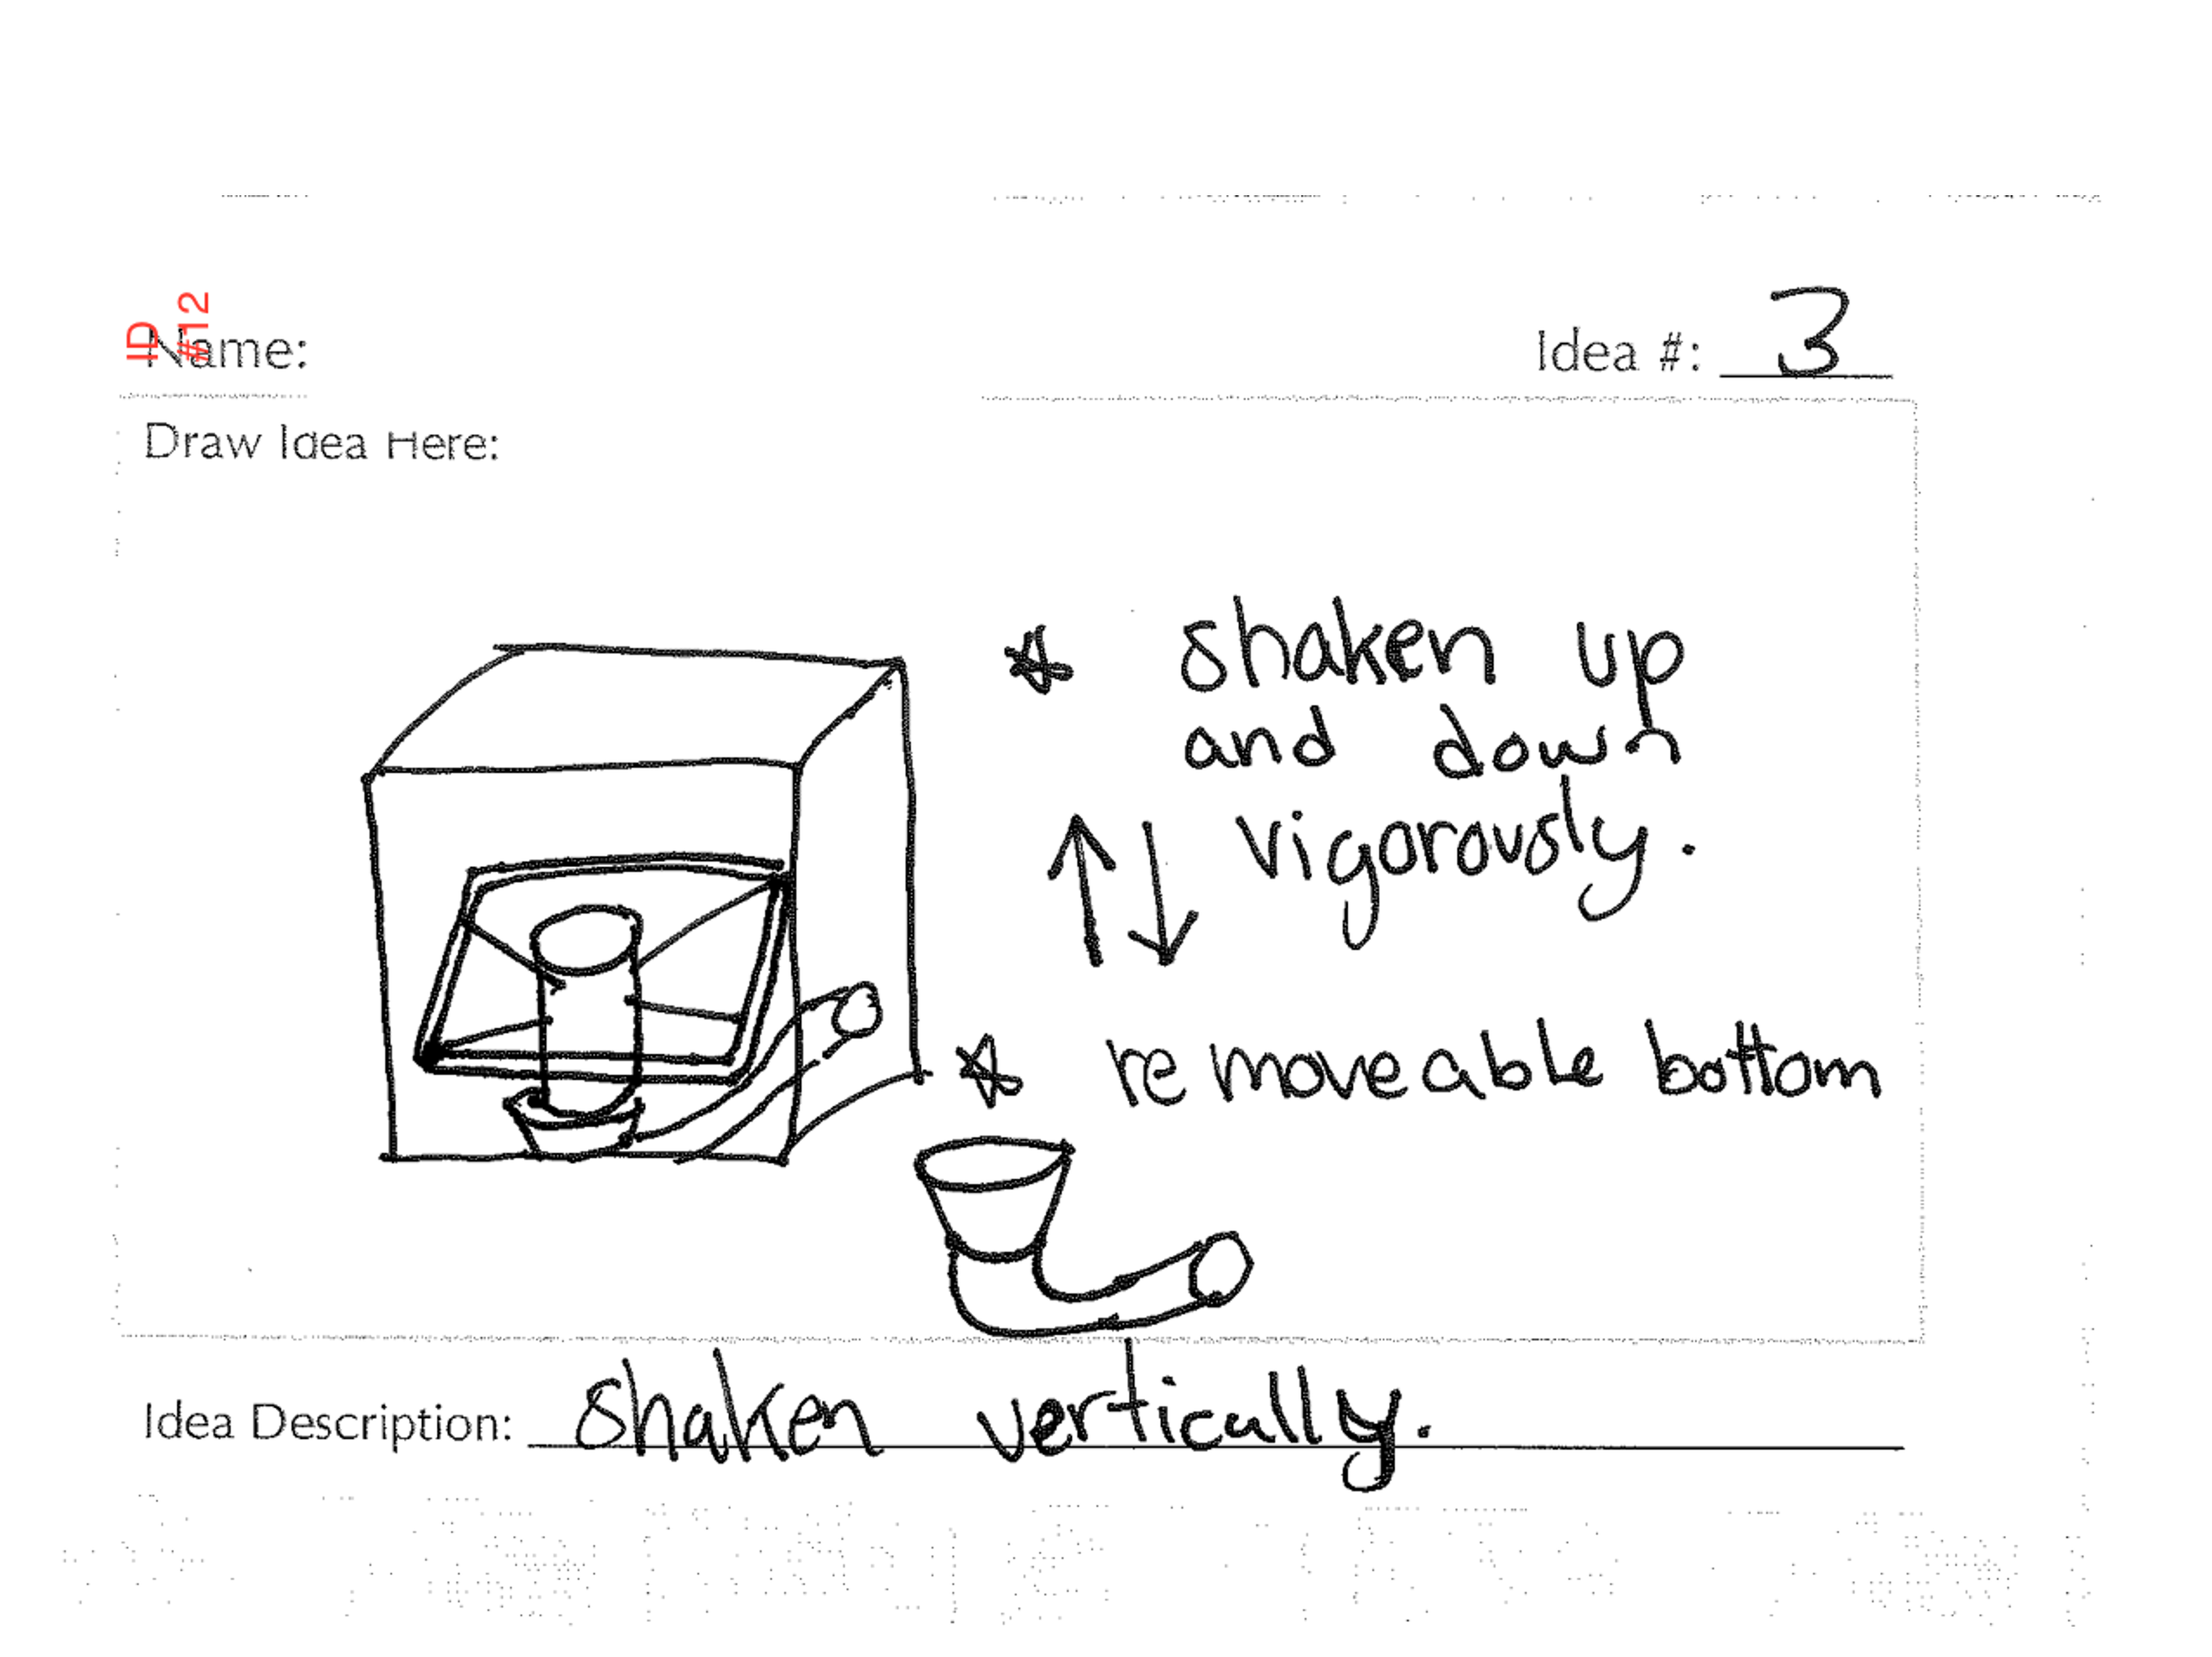 ID
#12
Name:
Idea #: 3
Draw Idea Here:
☆ shaken up
and down
↑↓ vigorously.
☆ removeable bottom
Idea Description: shaken vertically.